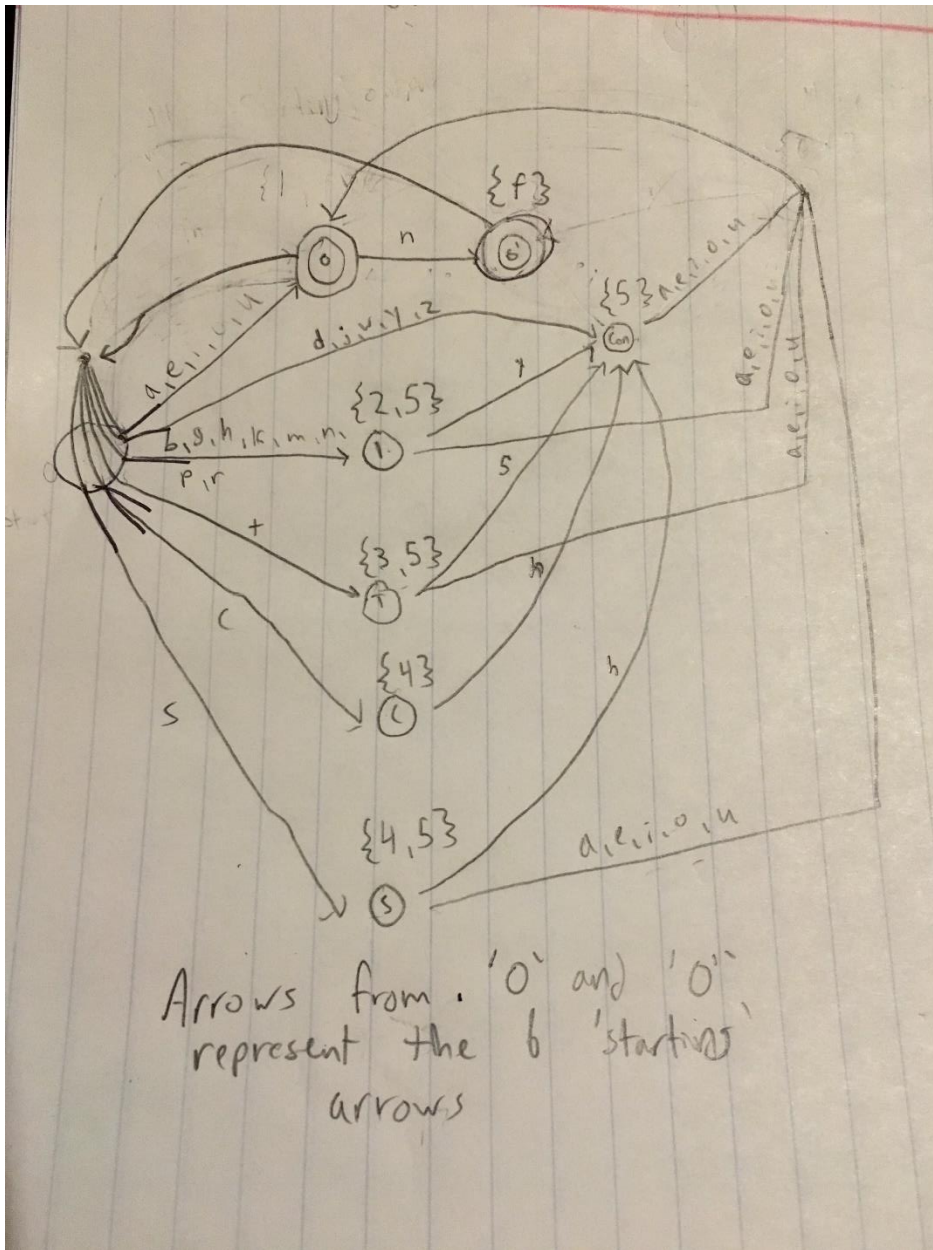 {f}
0
n
0'
{5}
a,e,i,o,u
Con
a,e,i,o,u
d,j,w,y,z
{2,5}
y
a,e,i,o,u
a,e,i,o,u
b,g,h,k,m,n,
p,r
1
s
{3,5}
t
T
h
c
{4}
C
h
s
{4,5}
a,e,i,o,u
S
Arrows from '0' and '0''
represent the 6 'starting'
arrows